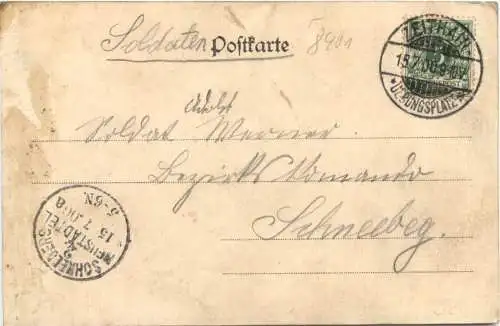 Soldaten Postkarte
8901
ZEITHAIN
15.7.00.8-9V.
*ÜBUNGSPLATZ*
Adolf
Soldat Werner.
Bezirks Comando
Schneebeg.
SCHNEEBERG
NEUSTÄDTEL
15 7 00
5-6N.